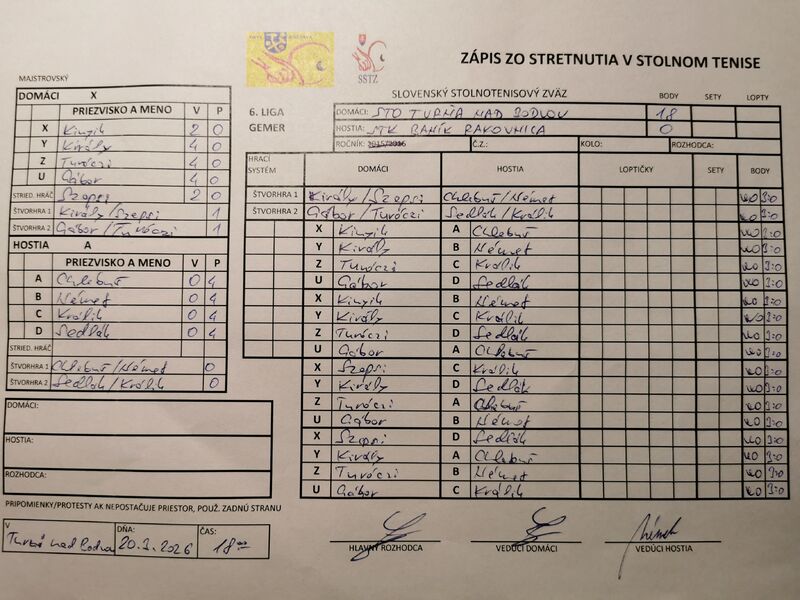 SSTZ
ZÁPIS ZO STRETNUTIA V STOLNOM TENISE
MAJSTROVSKÝ
SLOVENSKÝ STOLNOTENISOVÝ ZVÄZ BODY SETY LOPTY
DOMÁCI X
PRIEZVISKO A MENO V P
X Kinyik 2 0
Y Király 4 0
Z Turóczi 4 0
U Gábor 4 0
STRIED. HRÁČ Szepsi 2 0
ŠTVORHRA 1 Király/Szepsi 1
ŠTVORHRA 2 Gábor/Turóczi 1
HOSTIA A
PRIEZVISKO A MENO V P
A Chlebuš 0 4
B Német 0 4
C Králik 0 4
D Sedlák 0 4
STRIED. HRÁČ
ŠTVORHRA 1 Chlebuš/Német 0
ŠTVORHRA 2 Sedlák/Králik 0
DOMÁCI:
HOSTIA:
ROZHODCA:
PRIPOMIENKY/PROTESTY AK NEPOSTAČUJE PRIESTOR, POUŽ. ZADNÚ STRANU
V Turňa nad Bodvou DŇA: 20.3.2026 ČAS: 18 00
6. LIGA
GEMER
DOMÁCI: STO TURŇA NAD BODVOU 18
HOSTIA: STK BANÍK RAKOVNICA 0
ROČNÍK: 2015/2016 Č.Z.: KOLO: ROZHODCA:
HRACÍ SYSTÉM DOMÁCI HOSTIA LOPTIČKY SETY BODY
ŠTVORHRA 1 Király/Szepsi Chlebuš/Német wo 3:0
ŠTVORHRA 2 Gábor/Turóczi Sedlák/Králik wo 3:0
X Kinyik A Chlebuš wo 3:0
Y Király B Német wo 3:0
Z Turóczi C Králik wo 3:0
U Gábor D Sedlák wo 3:0
X Kinyik B Német wo 3:0
Y Király C Králik wo 3:0
Z Turóczi D Sedlák wo 3:0
U Gábor A Chlebuš wo 3:0
X Szepsi C Králik wo 3:0
Y Király D Sedlák wo 3:0
Z Turóczi A Chlebuš wo 3:0
U Gábor B Német wo 3:0
X Szepsi D Sedlák wo 3:0
Y Király A Chlebuš wo 3:0
Z Turóczi B Német wo 3:0
U Gábor C Králik wo 3:0
HLAVNÝ ROZHODCA VEDÚCI DOMÁCI VEDÚCI HOSTIA